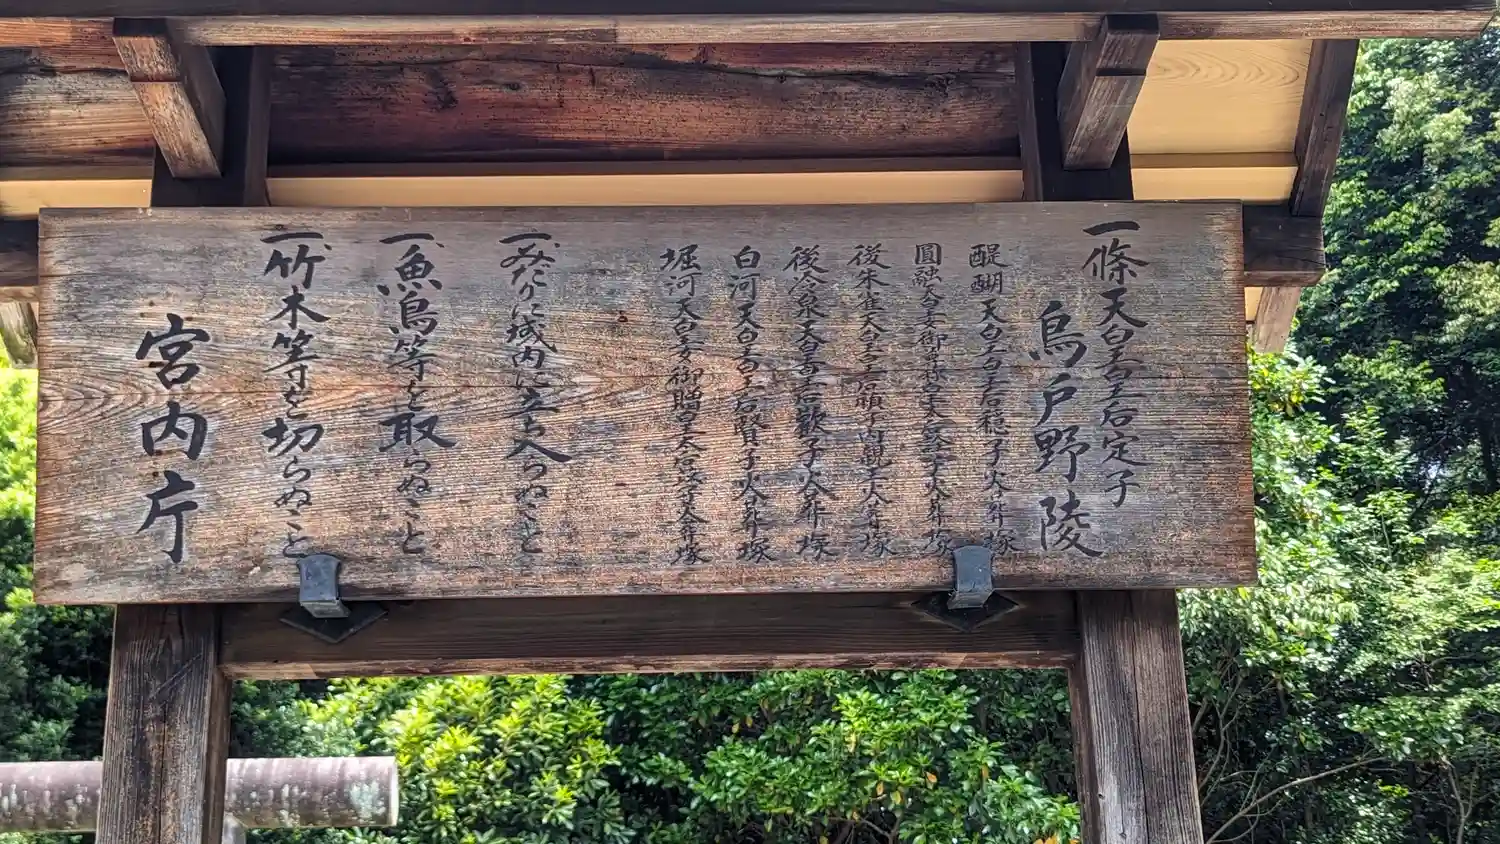 一條天皇皇后定子
鳥戸野陵
醍醐天皇皇后穏子火葬塚
圓融天皇女御尊称皇太后詮子火葬塚
後朱雀天皇皇后禎子内親王火葬塚
後冷泉天皇皇后歓子火葬塚
白河天皇皇后賢子火葬塚
堀河天皇女御贈皇太后苡子火葬塚
一、みだりに域内に立ち入らぬこと
一、魚鳥等を取らぬこと
一、竹木等を切らぬこと
宮内庁